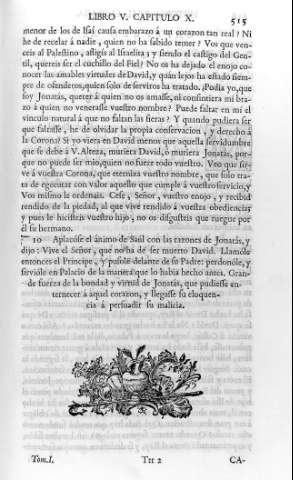 LIBRO V. CAPITULO X. 515
menor de los de Isaì causa embarazo à un corazon tan real? Ni
he de recelar à nadie, quien no ha sabido temer? Vos que ven-
ceis al Palestino, astigis al Israelita; y siendo el castigo del Gen-
til, quereis ser el cuchillo del Fiel? No os ha dejado el enojo co-
nocer las amables virtudes de David, y quàn lejos ha estado siem-
pre de ofenderos, quien solo de serviros ha tratado. ¿Podia yo, que
soy Jonatàs, querer à quien no os amasse, ni consintiera mi bra-
zo à quien no venerasse vuestro nombre? Puede faltar en mi el
vinculo natural à que no faltan las fieras? Y quando pudiera ser
que faltasse, he de olvidar la propia conservacion, y derecho à
la Corona? Si yo viera en David menos que aquella servidumbre
que se debe à V. Alteza, muriera David, ò muriera Jonatàs, por-
que no puede ser mio, quien no fuere todo vuestro. Veo que sir-
ve à vuestra Corona, que eterniza vuestro nombre, que solo tra-
ta de egecutar con valor aquello que cumple à vuestro servicio, y
Vos mismo le ordenais. Cese, Señor, vuestro enojo, y recibid
rendido de la piedad, al que vive rendido à vuestra obediencia;
y pues le hicisteis vuestro hijo, no os disgusteis que ruegue por
èl su hermano.
10 Aplacòse el animo de Saùl con las razones de Jonatàs, y
dijo: Vive el Señor, que no ha de ser muerto David. Llamòle
entonces el Principe, y pusole delante de su Padre: perdonòle, y
serviòle en Palacio de la manera que lo habia hecho antes. Gran-
de fuerza de la bondad y virtud de Jonatàs, que pudiesse en-
ternecer à aquel corazon, y llegasse su eloquen-
cia à persuadir su malicia.
Tom. I. Ttt 2 CA-